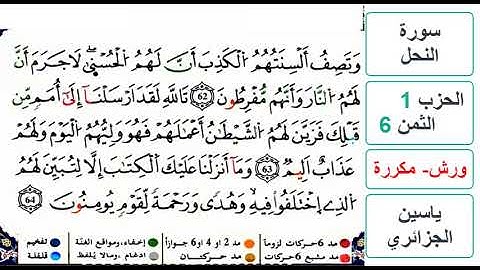 وَتَصِفُ أَلْسِنَتُهُمُ الْكَذِبَ أَنَّ لَهُمُ الْحُسْنَىٰ لَا جَرَمَ أَنَّ
لَهُمُ النَّارَ وَأَنَّهُم مُّفْرِطُونَ 62 تَاللَّهِ لَقَدْ أَرْسَلْنَا إِلَىٰ أُمَمٍ مِّن
قَبْلِكَ فَزَيَّنَ لَهُمُ الشَّيْطَانُ أَعْمَالَهُمْ فَهُوَ وَلِيُّهُمُ الْيَوْمَ وَلَهُمْ
عَذَابٌ أَلِيمٌ 63 وَمَا أَنزَلْنَا عَلَيْكَ الْكِتَابَ إِلَّا لِتُبَيِّنَ لَهُمُ
الَّذِي اخْتَلَفُوا فِيهِ وَهُدًى وَرَحْمَةً لِّقَوْمٍ يُومِنُونَ 64
سورة
النحل
الحزب 1
الثمن 6
ورش- مكررة
ياسين
الجزائري
مد 6 حركات لزوماً
مد 2 أو 4 أو 6 جوازاً
إخفاء، ومواقع الغنّة
تفخيم
مد مشبع 6 حركات
مد حركتان
ادغام، ومالا يُلفظ
قلقلة